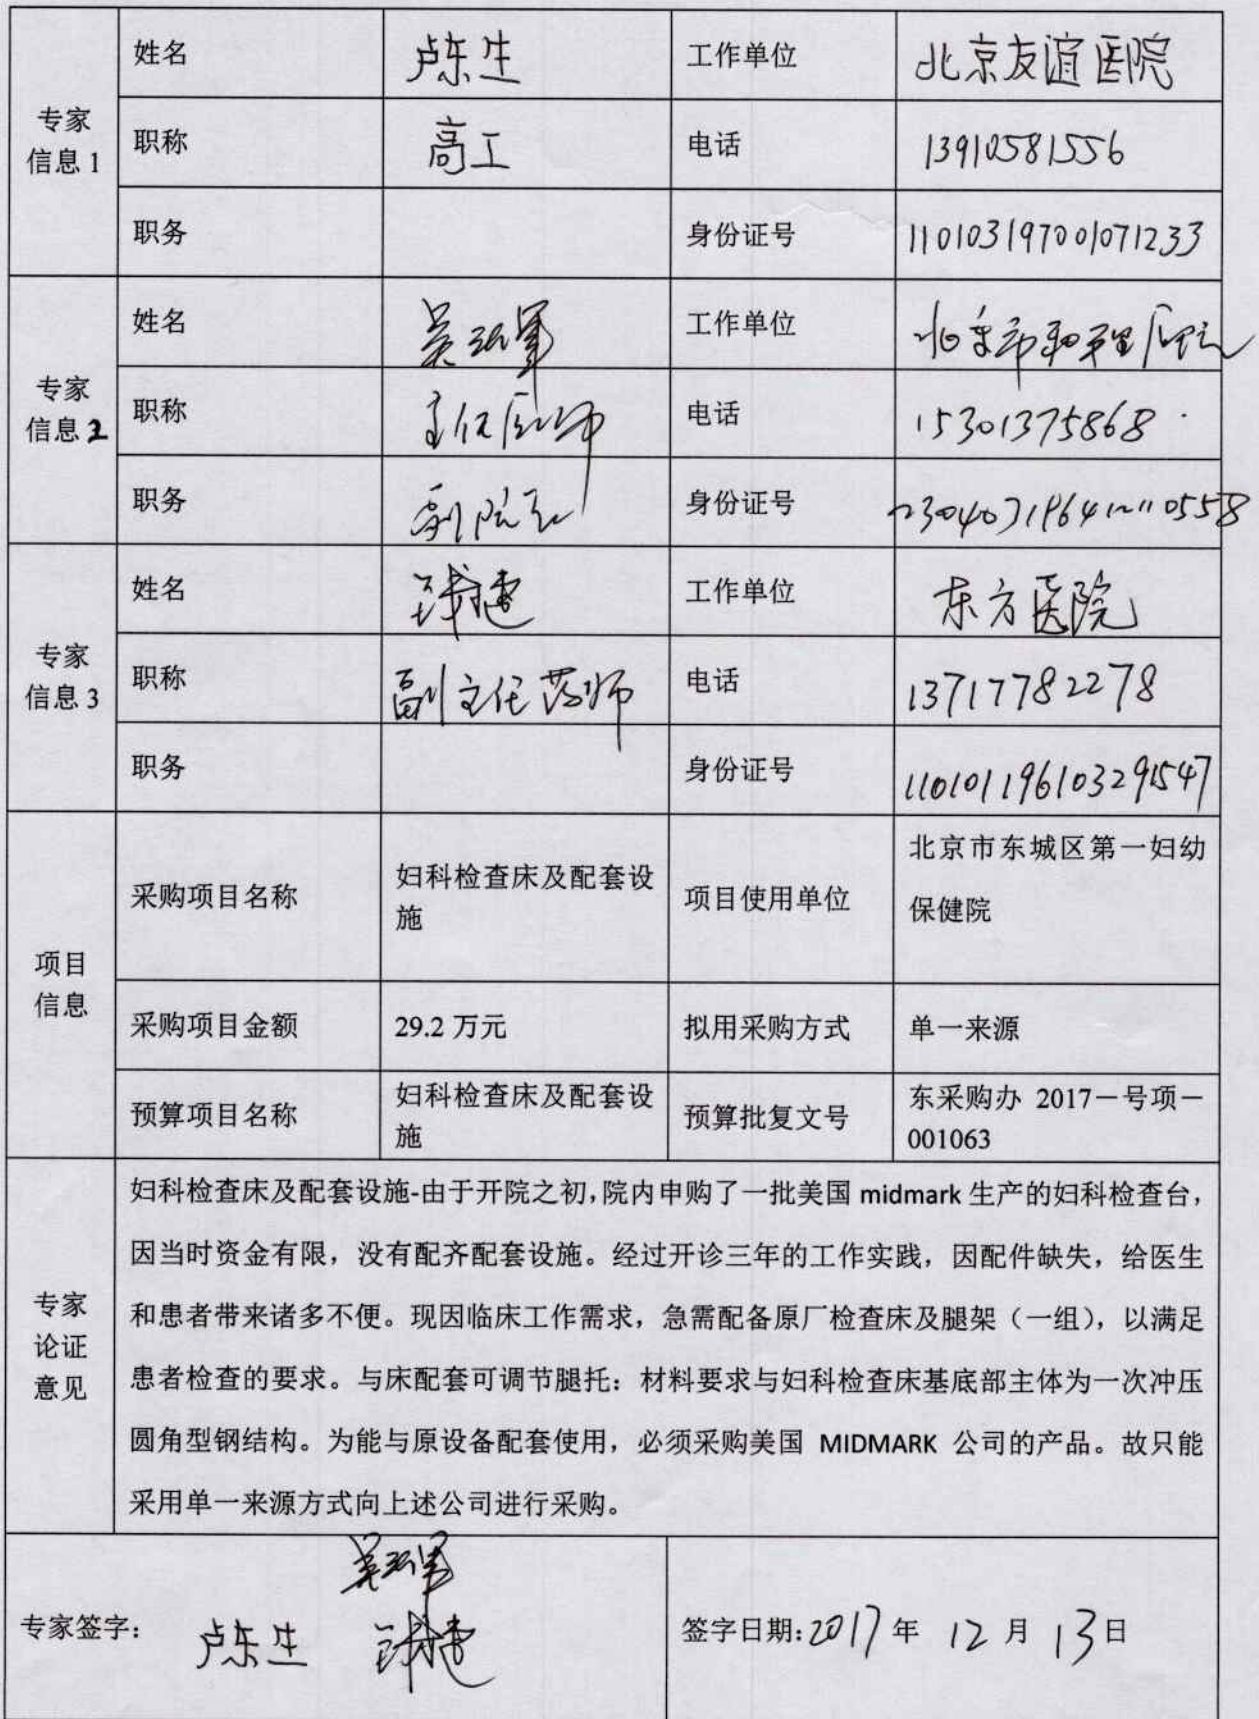 姓名 卢东生 工作单位 北京友谊医院
专家
信息1
职称 高工 电话 13910581556
职务 身份证号 110103197001071233
姓名 工作单位
专家
信息2
职称 主任医师 电话 15301375868
职务 副院长 身份证号
姓名 工作单位 东方医院
专家
信息3
职称 副主任药师 电话 13717782278
职务 身份证号 110101196103291547
项目
信息
采购项目名称 妇科检查床及配套设
施
项目使用单位 北京市东城区第一妇幼
保健院
采购项目金额 29.2万元 拟用采购方式 单一来源
预算项目名称 妇科检查床及配套设
施
预算批复文号 东采购办 2017－号项－
001063
专家
论证
意见
妇科检查床及配套设施-由于开院之初,院内申购了一批美国 midmark 生产的妇科检查台，
因当时资金有限，没有配齐配套设施。经过开诊三年的工作实践，因配件缺失，给医生
和患者带来诸多不便。现因临床工作需求，急需配备原厂检查床及腿架（一组），以满足
患者检查的要求。与床配套可调节腿托：材料要求与妇科检查床基底部主体为一次冲压
圆角型钢结构。为能与原设备配套使用，必须采购美国 MIDMARK 公司的产品。故只能
采用单一来源方式向上述公司进行采购。
专家签字： 卢东生
签字日期: 2017 年 12 月 13 日